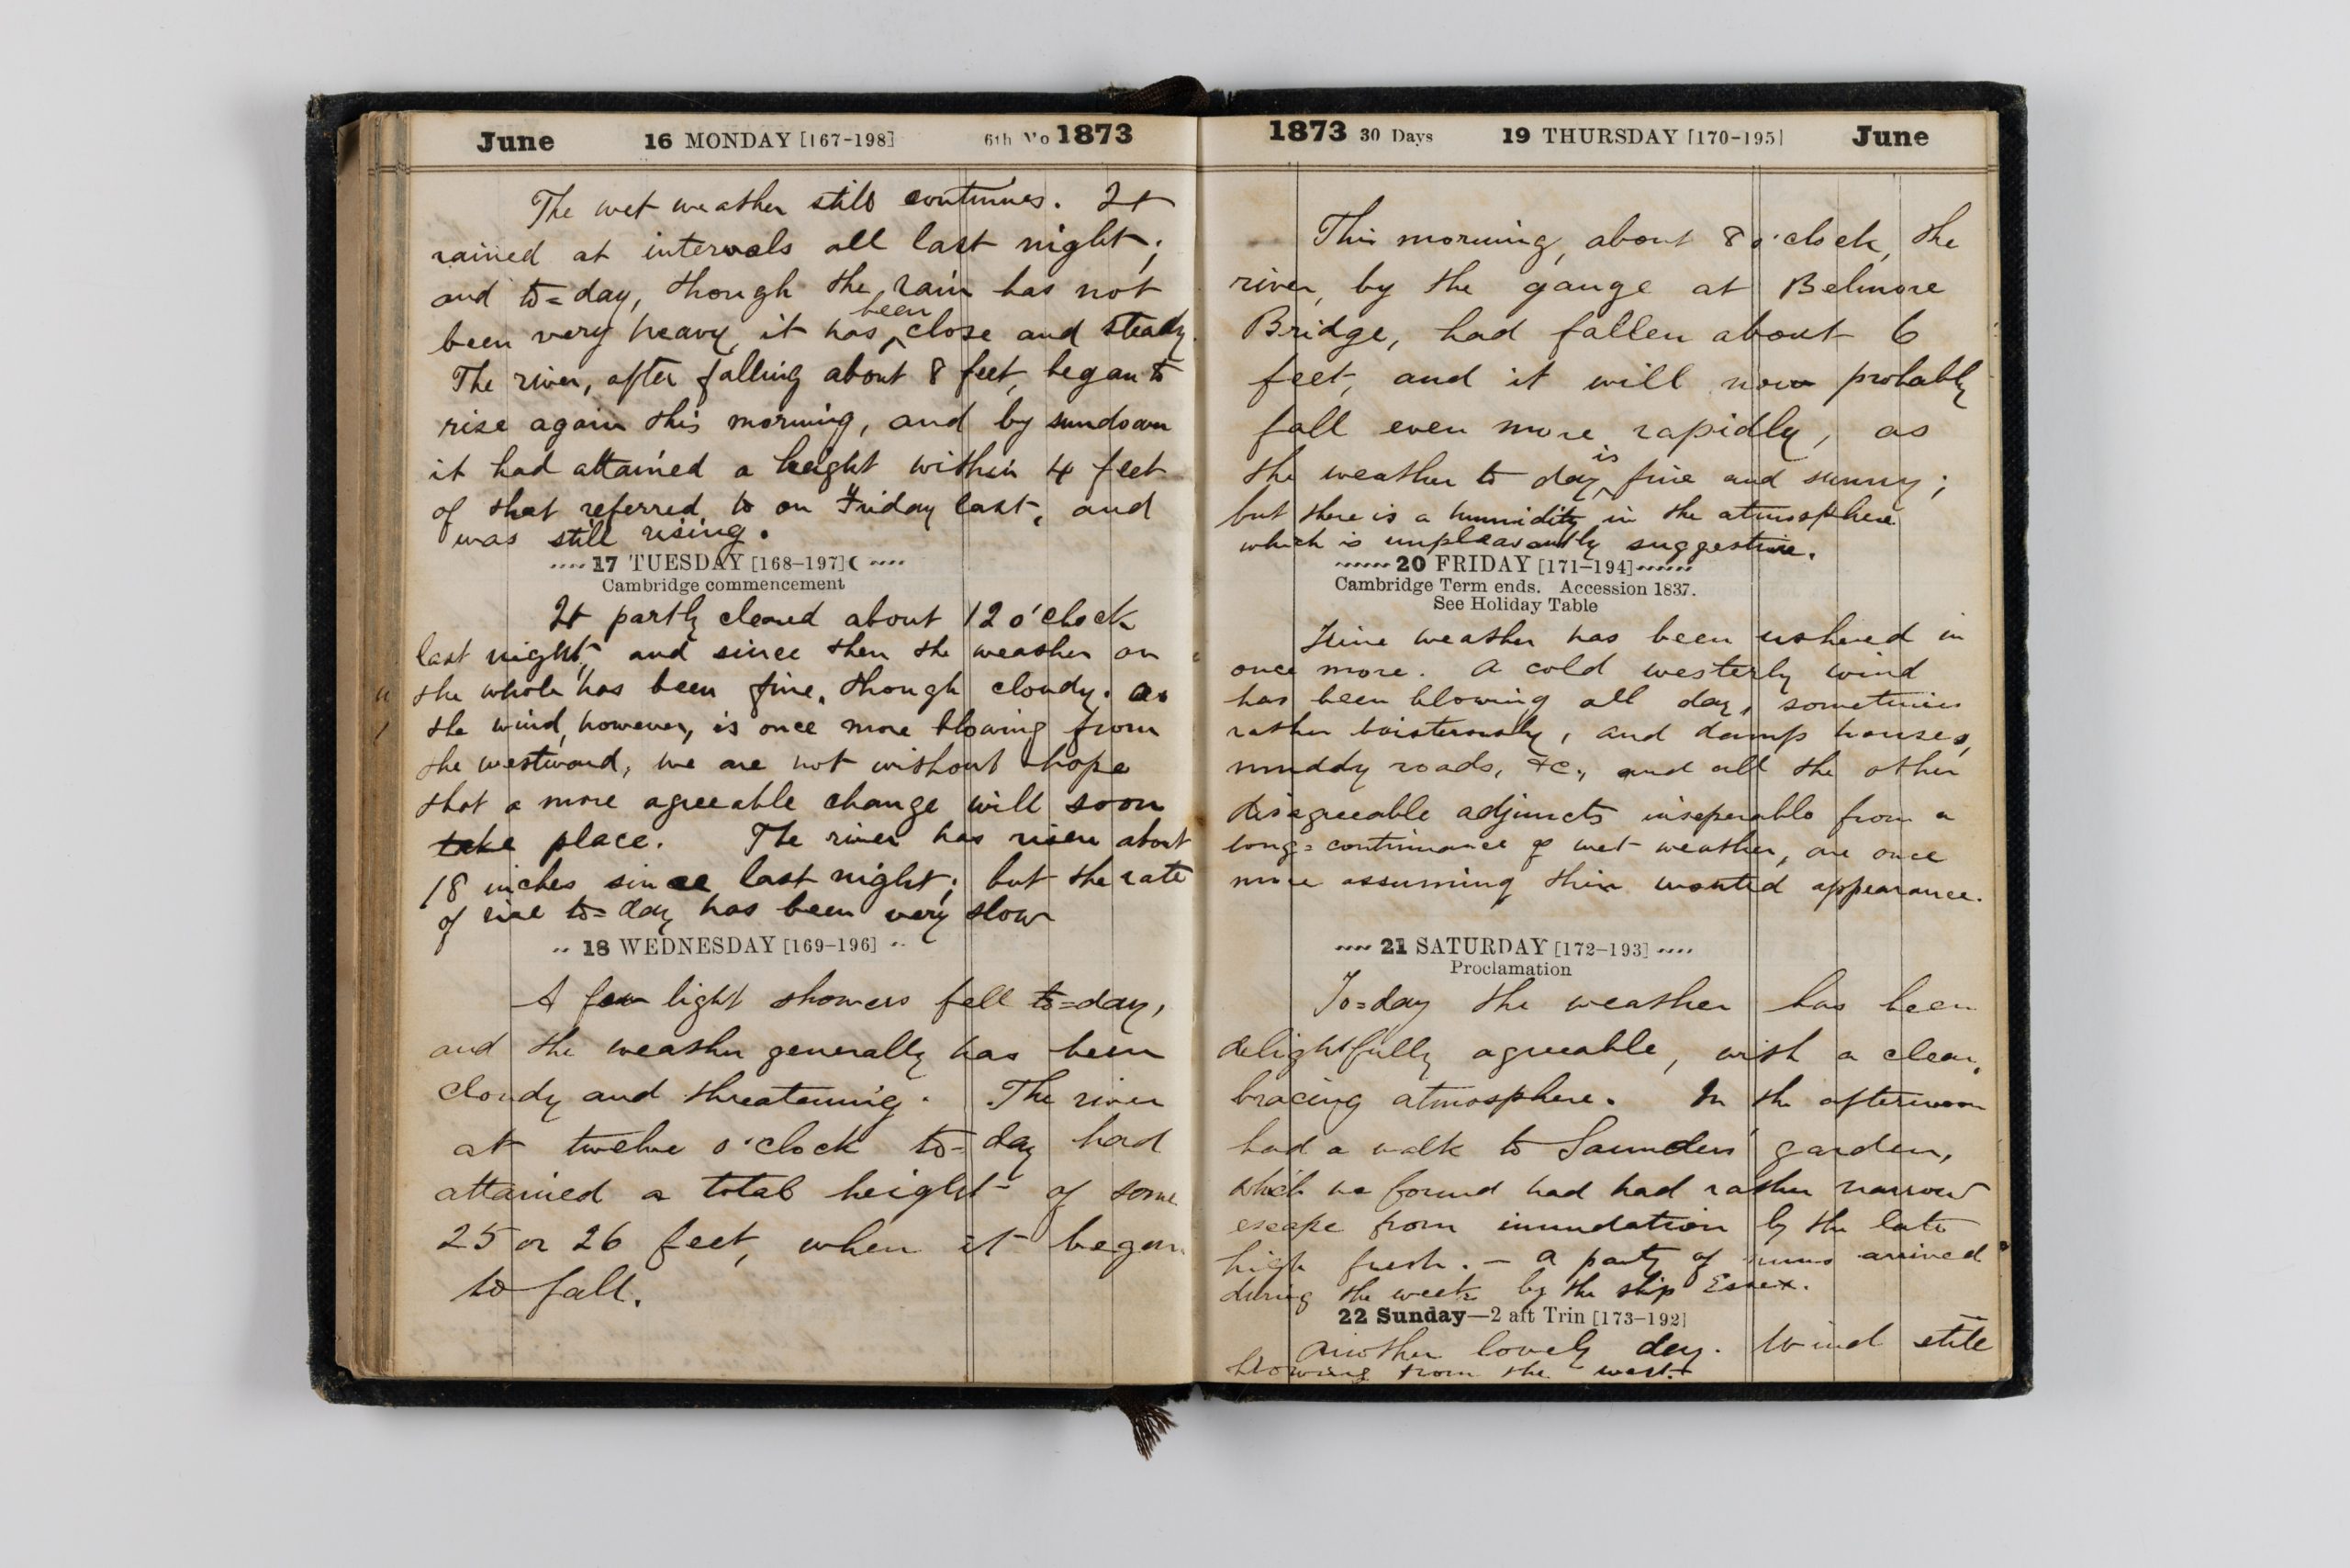 June 16 MONDAY [167-198] 6th Mo 1873
The wet weather still continues. It
rained at intervals all last night;
and to=day, though the rain has not
been very heavy, it has been close and steady.
The river, after falling about 8 feet, began to
rise again this morning, and by sundown
it had attained a height within 4 feet
of that referred to on Friday last, and
was still rising.
17 TUESDAY [168-197]
Cambridge commencement
It partly cleared about 12 o'clock
last night, and since then the weather on
the whole has been fine, though cloudy. As
the wind, however, is once more blowing from
the westward, we are not without hope
that a more agreeable change will soon
take place. The river has risen about
18 inches since last night; but the rate
of rise to=day has been very slow
18 WEDNESDAY [169-196]
A few light showers fell to=day,
and the weather generally has been
cloudy and threatening. The river
at twelve o'clock to=day had
attained a total height of some
25 or 26 feet, when it began
to fall.
1873 30 Days 19 THURSDAY [170-195] June
This morning, about 8 o'clock, the
river, by the gauge at Belmore
Bridge, had fallen about 6
feet, and it will now probably
fall even more rapidly, as
the weather to day is fine and sunny;
but there is a humidity in the atmosphere
which is unpleasantly suggestive.
20 FRIDAY [171-194]
Cambridge Term ends. Accession 1837.
See Holiday Table
Fine weather has been ushered in
once more. A cold westerly wind
has been blowing all day, sometimes
rather boisterously, and damp houses,
muddy roads, &c., and all the other
disagreeable adjuncts inseperable from a
long=continuance of wet weather, are once
more assuming their wonted appearance.
21 SATURDAY [172-193]
Proclamation
To=day the weather has been
delightfully agreeable, with a clear,
bracing atmosphere. In the afternoon
had a walk to Saunders' garden,
which we found had had rather narrow
escape from inundation by the late
high fresh. — A party of nuns arrived
during the week by the ship Essex.
22 Sunday—2 aft Trin [173-192]
Another lovely day. Wind still
blowing from the west.